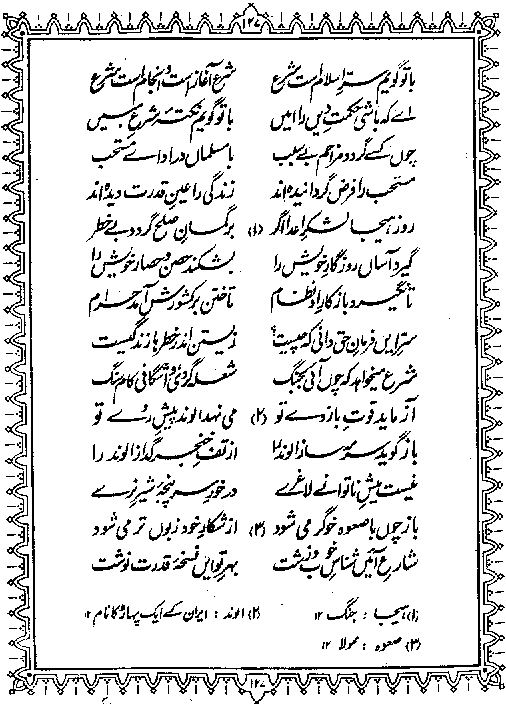 ۱۲۷
با تو گویم سرِّ اسلام است شرع    شرع آغاز است و انجام است شرع
اے کہ باشی حکمتِ دیں را امیں    با تو گویم نکتۂ شرعِ مبیں
چوں کسے گردد مزاحم بے سبب    با مسلماں در ادائے مستحب
مستحب را فرض گردانیدہ اند    زندگی را عینِ قدرت دیدہ اند
روز ہیجا لشکرِ اعدا اگر (۱) بر گمانِ صلح گردد بے خطر
گیرد آساں روزگارِ خویش را    بشکند حصن و حصارِ خویش را
تا نگیرد باز کارِ او نظام    تاختن بر کشورش آمد حرام
سرِّ ایں فرمانِ حق دانی کہ چیست؟    زیستن اندر خطرہا زندگیست
شرع میخواہد کہ چوں آئی بجنگ    شعلہ گردی واشگافی کامِ سنگ
آزماید قوتِ بازوے تو (۲) می نہد الوند پیشِ روے تو
باز گوید سرمہ ساز الوند را    از تفِ خنجر گداز الوند را
نیست میشِ ناتوانے لاغرے    درخورِ سرپنجۂ شیرِ نرے
باز چوں با صعوہ خوگر می شود (۳) از شکارِ خود زبوں تر می شود
شارعِ آئیں شناسِ خوب و زشت    بہرِ تو ایں نسخۂ قدرت نوشت
(۱) ہیجا : جنگ ۱۲    (۲) الوند : ایران کے ایک پہاڑ کا نام ۱۲
(۳) صعوہ : ممولا ۱۲
۱۲۷